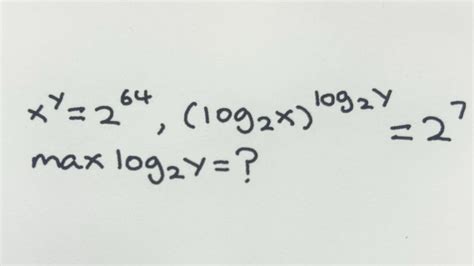 x^y = 2^64, (log₂x)^log₂y = 2^7
max log₂y = ?